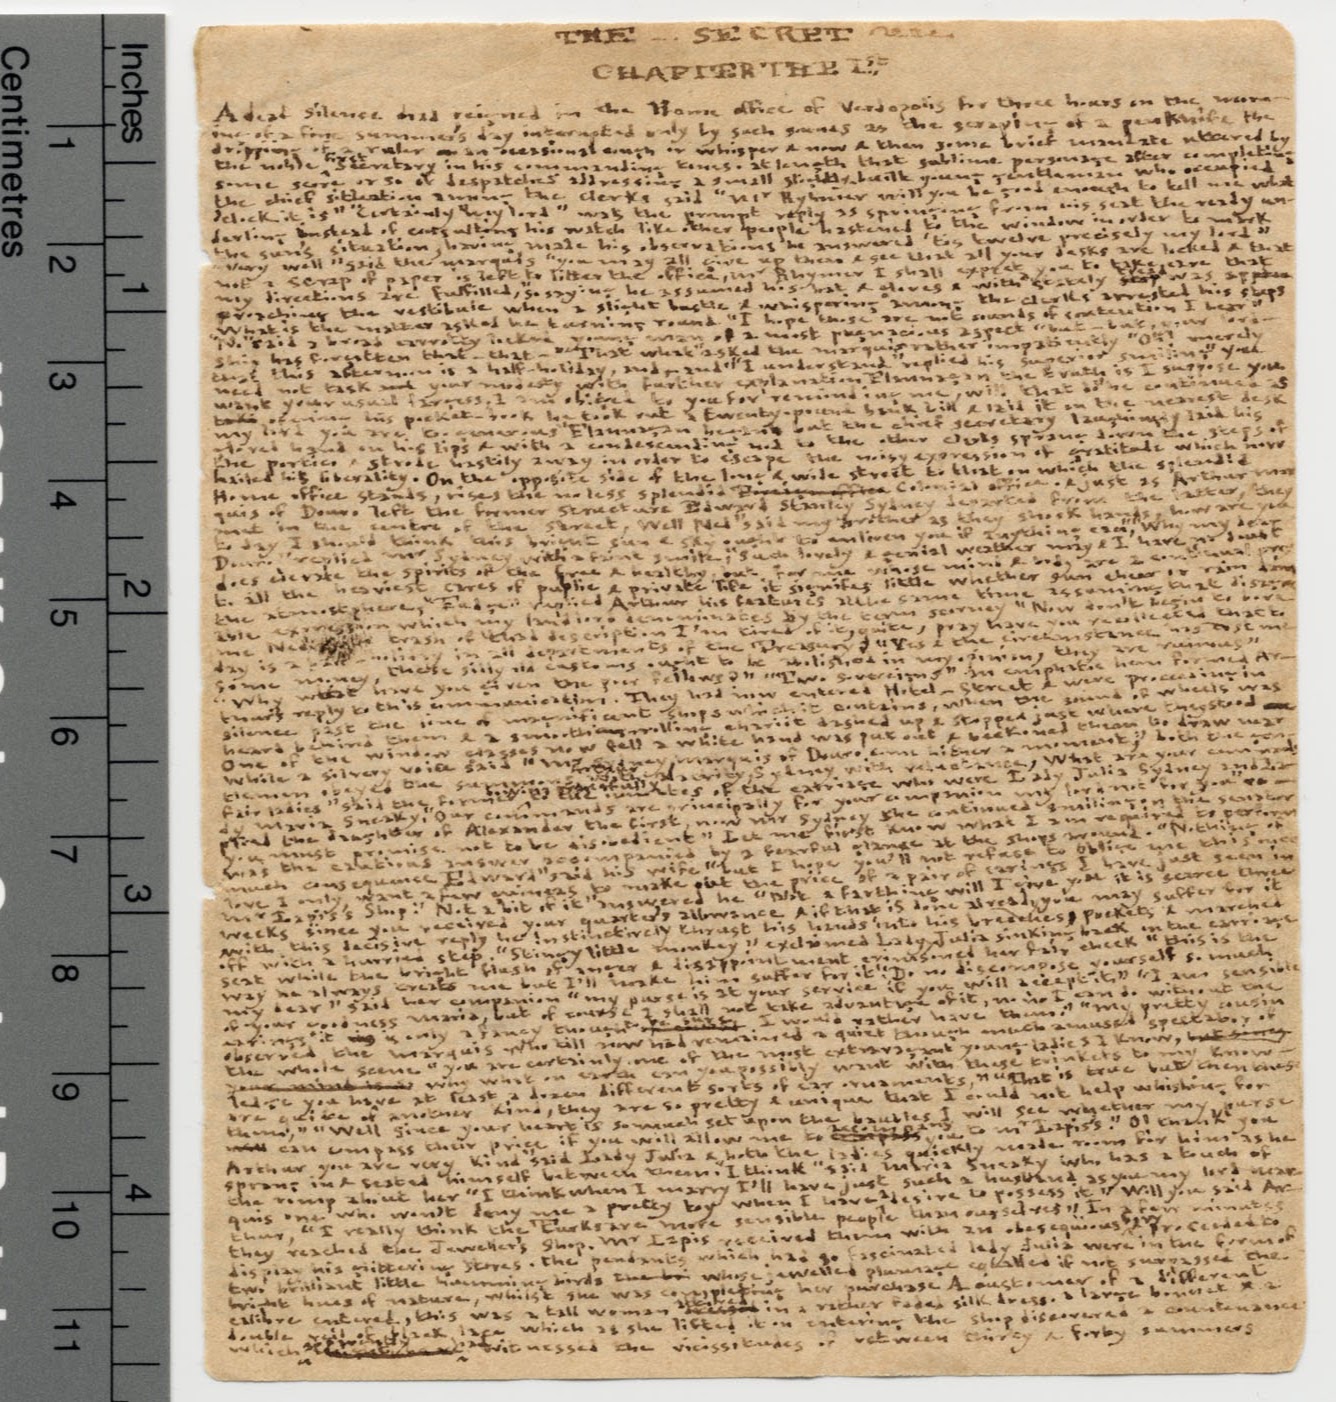 Centimetres
Inches
1 2 3 4 5 6 7 8 9 10 11
1 2 3 4
THE SECRET
CHAPTER THE Ist
A dead silence had reigned in the Home office of Verdopolis for three hours on the morn-
ing of a fine summer's day interrupted only by such sounds as the scraping of a penknife the
dripping of a ruler or an occasional cough or whisper & now & then some brief mandate uttered by
the noble first Secretary in his commanding tones. at length that sublime personage after completing
some score or so of despatches addressing a small slightly built young gentleman who occupied
the chief situation among the clerks said "Mr Rhymer will you be good enough to tell me what
o'clock it is" "Certainly my lord" was the prompt reply as springing from his seat the ready un-
derling instead of consulting his watch like other people hastened to the window in order to mark
the sun's situation, having made his observations he answered 'tis twelve precisely my lord"
"Very well" said the marquis "you may all give up then & see that all your desks are locked & that
not a scrap of paper is left to litter the office, Mr Rhymer I shall expect you to take care that
my directions are fulfilled," so saying he assumed his hat & gloves & with stately tread was
approaching the vestibule when a slight bustle & whispering among the clerks arrested his steps
"What is the matter asked he turning round "I hope those are not sounds of contention I hear"
"No" said a broad carrotty locked young man of a most pugnacious aspect "but—but, your lord-
ship has forgotten that—that—" "That what" asked the marquis rather impatiently "Oh! merely
that this afternoon is a half-holiday, and—and" "I understand" replied his superior smiling" you
need not task your modesty with further explanation Flannagan the truth is I suppose you
want your usual largess, I am obliged to you for reminding me, will that do he continued as
opening his pocket-book he took out a twenty-pound bank bill & laid it on the nearest desk
my lord you are to generous Flannagan but the chief secretary laughingly laid his
gloved hand on his lips & with a condescending nod to the other clerks sprang down the steps of
the portico & strode hastily away in order to escape the noisy expression of gratitude which now
hailed his liberality. On the opposite side of the long & wide street to that on which the splendid
Home office stands, rises the no less splendid Foreign office Colonial office. & just as Arthur mar-
quis of Douro left the former structure Edward Stanley Sydney departed from the latter, they
met in the centre of the street, Well Ned" said my brother as they shook hands, how are you
to day I should think this bright sun & sky ought to enliven you if anything can" "Why my dear
Douro" replied Mr Sydney with a faint smile" Such lovely & genial weather may & I have no doubt
does elevate the spirits of the free & healthy, but for me whose mind & body are a continual prey
to all the heaviest cares of public & private life it signifies little whether sun cheer or rain damp
the atmostphere," "Fudge" replied Arthur his features at the same time assuming that disagree-
able expression which my landlord denominates by the term scorney "Now don't begin to bore
me Ned trash of that description I'm tired of it, quite, pray have you recollected that to
day is a half-holiday in all departments of the Treasury?" "Yes & the circumstance has cost me
some money, these silly old customs ought to be abolished in my opinion, they are ruinous"
"Why what have you given the poor fellows?" "Two sovereigns" an emphatic hem formed Ar-
thur's reply to this communication. They had now entered Hotel-Street & were proceeding in
silence past the line of magnificent shops which it contains, when the sound of wheels was
heard behind them & a smooth-rolling chariot dashed up & stopped just where they stood
One of the window glasses now fell a white hand was put out & beckoned them to draw near
while a silvery voice said "Mr Sydney, marquis of Douro come hither a moment," both the gen-
tlemen obeyed the summons with alacrity, Sydney with reluctance, What are your commands
fair ladies" said the former to the inmates of the carriage who were Lady Julia Sydney and La-
dy Maria Sneaky, Our commands are principally for your companion my lord not for you" re-
plied the daughter of Alexander the first, now Mr Sydney she continued smiling on the senator
"you must promise not to be disobedient" Let me first know what I am required to perform
was the cautious answer accompanied by a fearful glance at the shops around. "Nothing of
much consequence Edward" said his wife "but I hope you'll not refuse to oblige me this once
love I only want a few guineas to make out the price of a pair of earings I have just seen in
Mr Lapis's Shop." Not a bit of it" answered he "Not a farthing will I give you, it is scarce three
weeks since you received your quarter's allowance & if that is done already, you may suffer for it
with this decisive reply he instinctively thrust his hands into his breeches pockets & marched
off with a hurried step. "Stingy little monkey" exclaimed Lady Julia sinking back in the carriage
seat while the bright flush of anger & disappointment crimsoned her fair cheek "this is the
way he always treats me but I'll make him suffer for it" "Do no discompose yourself so much
my dear" said her companion "my purse is at your service if you will accept it." "I am sensible
of your goodness Maria, but of course I shall not take advantage of it, no no I can do without the
earings it is only a fancy though I would rather have them." "My pretty cousin
observed the marquis who till now had remained a quiet though much amused spectator of
the whole scene "you are certainly one of the most extravagant young ladies I know,
why what on earth can you possibly want with these trinkets to my know-
ledge you have at least a dozen different sorts of ear ornaments," "That is true but then these
are quite of another kind, they are so pretty & unique that I could not help whishing for
them," "Well since your heart is so much set upon the baubles I will see whether my purse
can compass their price if you will allow me to accompany you to Mr Lapis's." O! thank you
Arthur you are very kind" said Lady Julia & both the ladies quickly made room for him as he
sprang in & seated himself between them "I think" said Maria Sneaky who has a touch of
the romp about her "I think when I marry I'll have just such a husband as you my lord mar-
quis one who won't deny me a pretty toy when I have a desire to possess it" Will you said Ar-
thur, "I really think the Turks are more sensible people than ourselves" In a few minutes
they reached the Jeweller's Shop. Mr Lapis received them with an obsequious bow & proceeded to
display his glittering stores. the pendants which had so fascinated lady Julia were in the form of
two brilliant little humming birds whose jewelled plumage equalled if not surpassed the
bright hues of nature, whilst she was completing her purchase A customer of a different
calibre entered, this was a tall woman attired in a rather faded silk dress. a large bonnet & a
double veil of black lace which as she lifted it on entering the shop discovered a countenance
which witnessed the vicissitudes of between thirty & forty summers